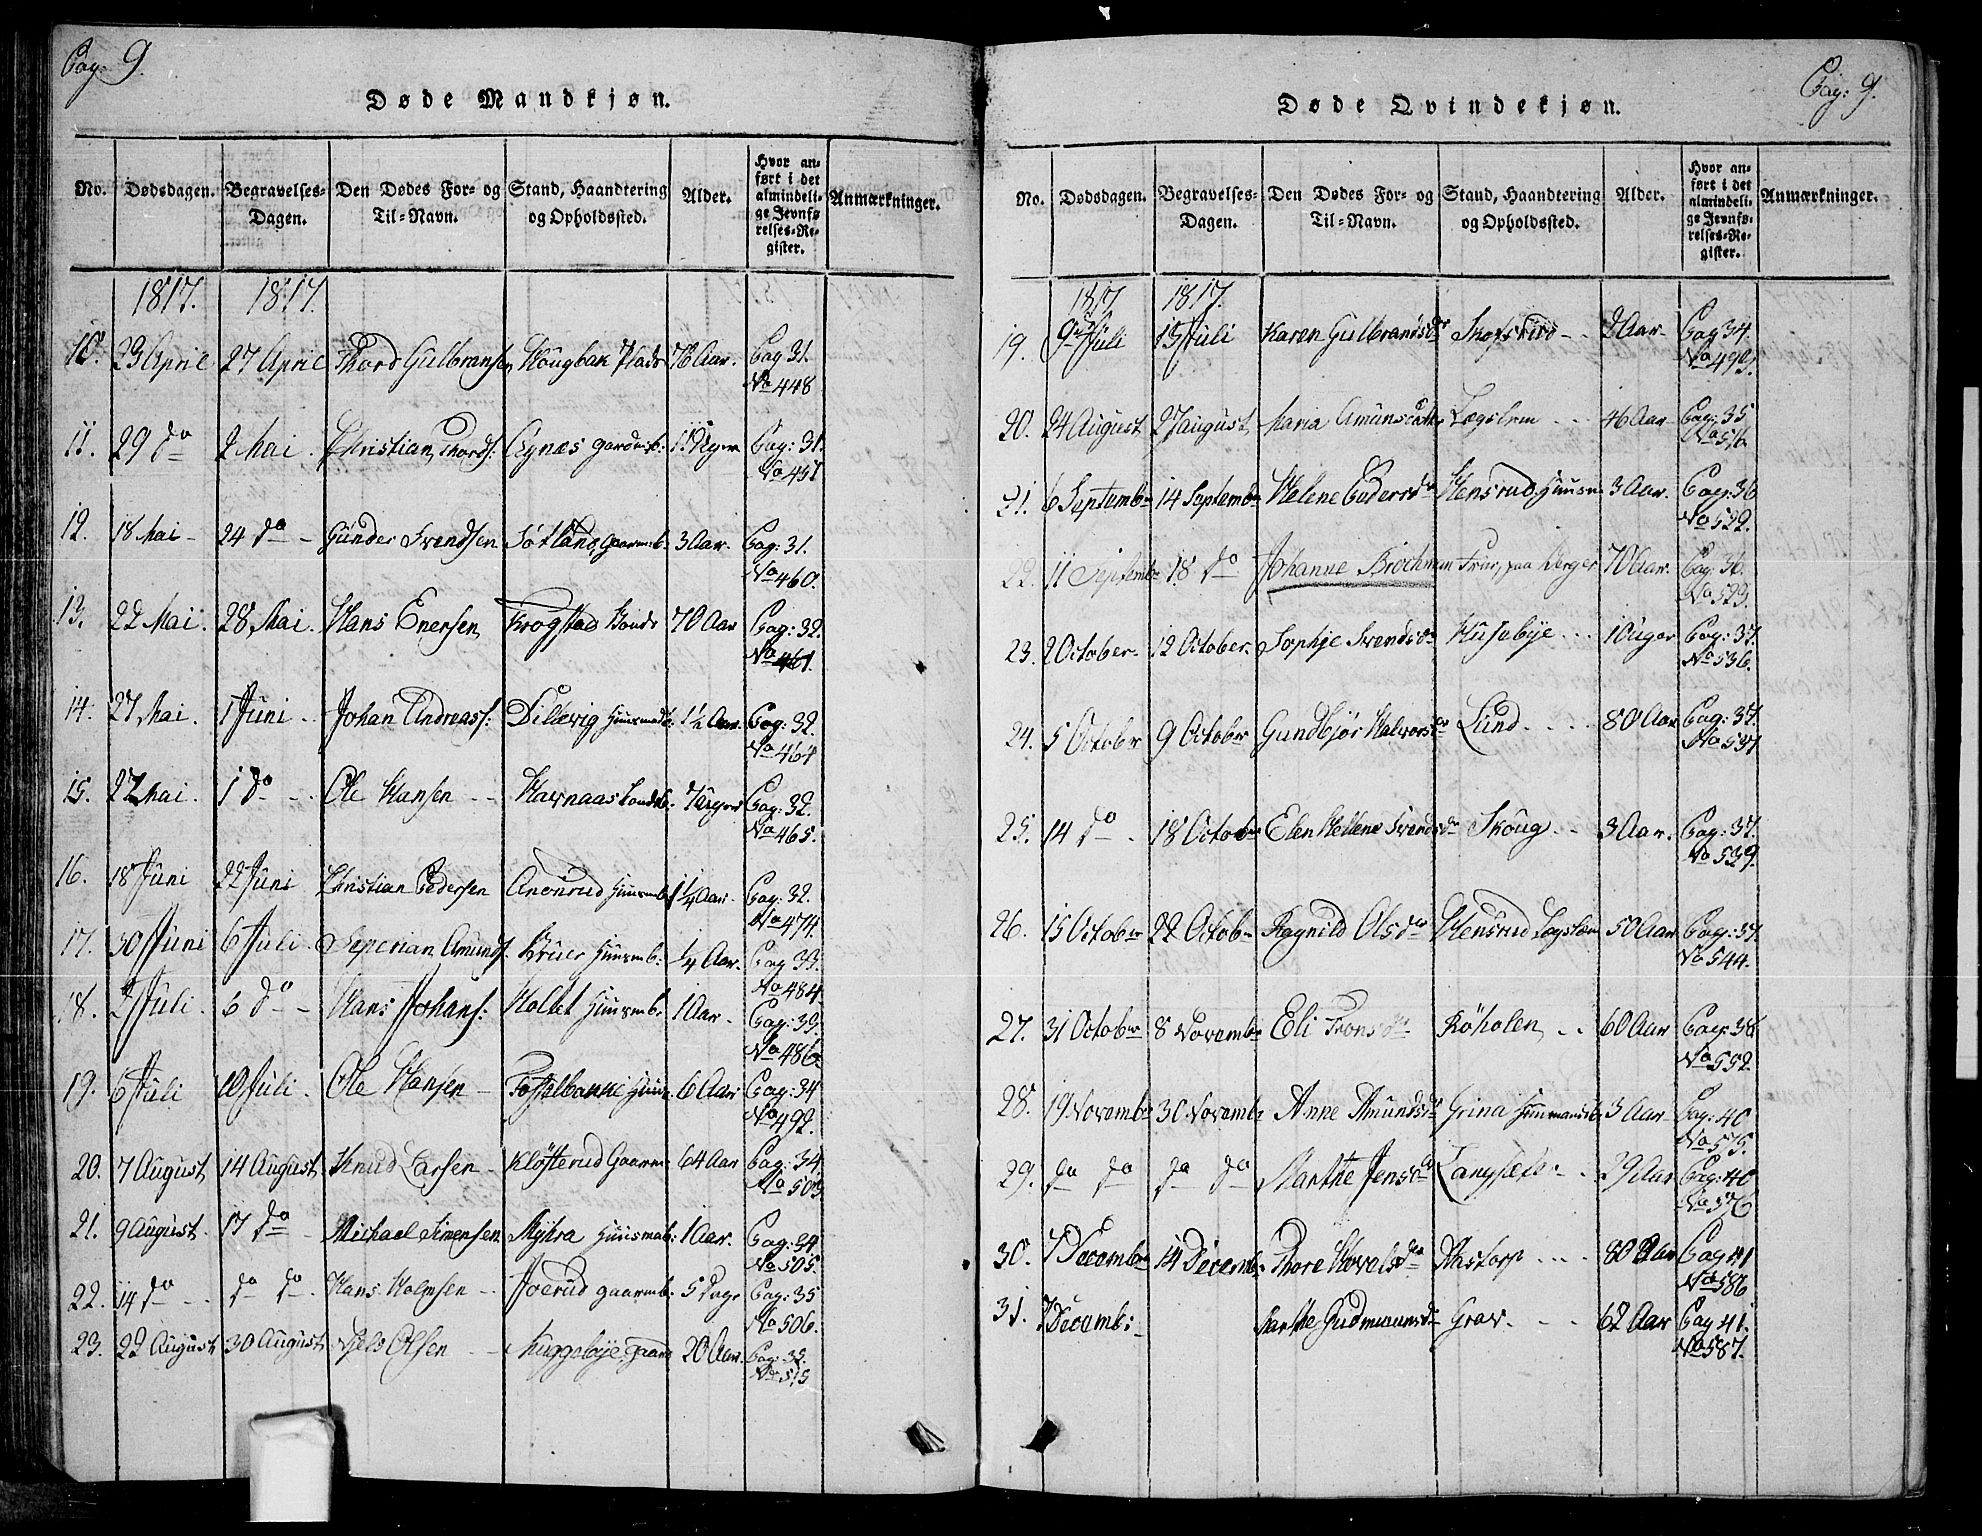 Pag: 9.
Døde Mandkjøn.
No. Dødsdagen. Begravelses-Dagen. Den Dødes For- og Til-Navn. Stand, Haandtering og Opholdssted. Alder. Hvor anført i det almindelige Jevnførelses-Register. Anmærkninger.
1817. 1817.
10. 23 April 27 April Thord Gulbransen Plads 76 Aar. Pag 31. No 448
11. 29 do 2 Mai Christian Thords: Agnæs Pag: 31. No 451
12. 18 Mai 24 do Gunder Svendsen Gaarmb: 3 Aar. Pag: 31. No 460.
13. 22 Mai. 28 Mai. Hans Enersen Krogstad Bonde 70 Aar Pag: 32. No 461
14. 27 Mai. 1 Juni Johan Andreass: Dillevig 1½ Aar. Pag: 32. No 464
15. 27 Mai. 1 do Ole Hansen Havnaas Pag: 32. No 465.
16. 18 Juni 22 Juni Christian Pedersen Huusmb: 1¼ Aar. Pag: 32. No 474
17. 30 Juni 6 Juli Amunds. Huusmb: ¼ Aar. Pag 33. No 484
18. 2 Juli. 6 do Hans Johans: Holtet Huusmb: 1 Aar Pag: 33. No 486.
19. 6 Juli 10 Juli. Ole Hansen 6 Aar Pag: 34 No 492.
20. 7 August 14 August Knud Larsen Kløsterud Gaarm: 64 Aar Pag: 34. No 503
21. 9 August 17 do Michael Simensen Myhra Huusmab: 1 Aar. Pag: 34 No 505.
22. 14 do do do Hans Holmsen Joerud gaarmb: 5 Dage Pag: 35 No 506.
23. 22 August 30 August Niels Olsen Muggebye Gaard 20 Aar. Pag: 35. No 515
Pag: 9.
Døde Qvindekjøn.
No. Dødsdagen. Begravelses-Dagen. Den Dødes For- og Til-Navn. Stand, Haandtering og Opholdssted. Alder. Hvor anført i det almindelige Jevnførelses-Register. Anmærkninger.
1817 1817.
19. 9 Juli 13 Juli Karen Gulbrandsdr 2 Aar Pag 34. No 493.
20. 24 August 27 august Maria Amunsdatter Lægslem 46 Aar Pag: 35 No 516
21. 6 Septembr 14 Septembr Helene Pedersdr Hensrud, Huusm 3 Aar. Pag: 36 No 522.
22. 11 Septembr 18 do Johanne Brochman Frue, paa Berger 70 Aar. Pag: 36. No 523.
23. 2 October 12 October. Sophje Svendsdr Husebye 10 uger Pag: 37. No 536.
24. 5 Octobr 9 Octobr Gundbjør Halvorsdr Lund 80 Aar Pag: 37. No 537
25. 14 do 18 Octobr Elen Hellene Svendsdr Skoug 3 Aar. Pag: 37. No 539.
26. 15 Octobr 22 Octobr Ragnild Olsdr Hensrud Lægslem 50 Aar Pag: 37. No 544.
27. 31 Octobr 8 Novembr Eli Tronsdr Røholen 60 Aar Pag: 38. No 552.
28. 19 Novembr 30 Novembr Anne Amundsdr Grina Huusmansb: 3 Aar Pag: 40 No 575.
29. do do do do Marthe Jensdr Langsæter 29 Aar Pag: 40 No 576
30. 7 Decembr 14 Decembr Thore Hovelsdr Hastorp 80 Aar Pag 41 No 586
31. 7 Decemb: Marthe Gudmundsdr Grav 62 Aar Pag 41. No 587.